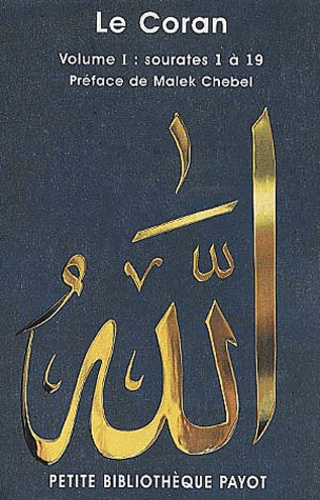 Le Coran
Volume I : sourates 1 à 19
Préface de Malek Chebel
الله
PETITE BIBLIOTHÈQUE PAYOT